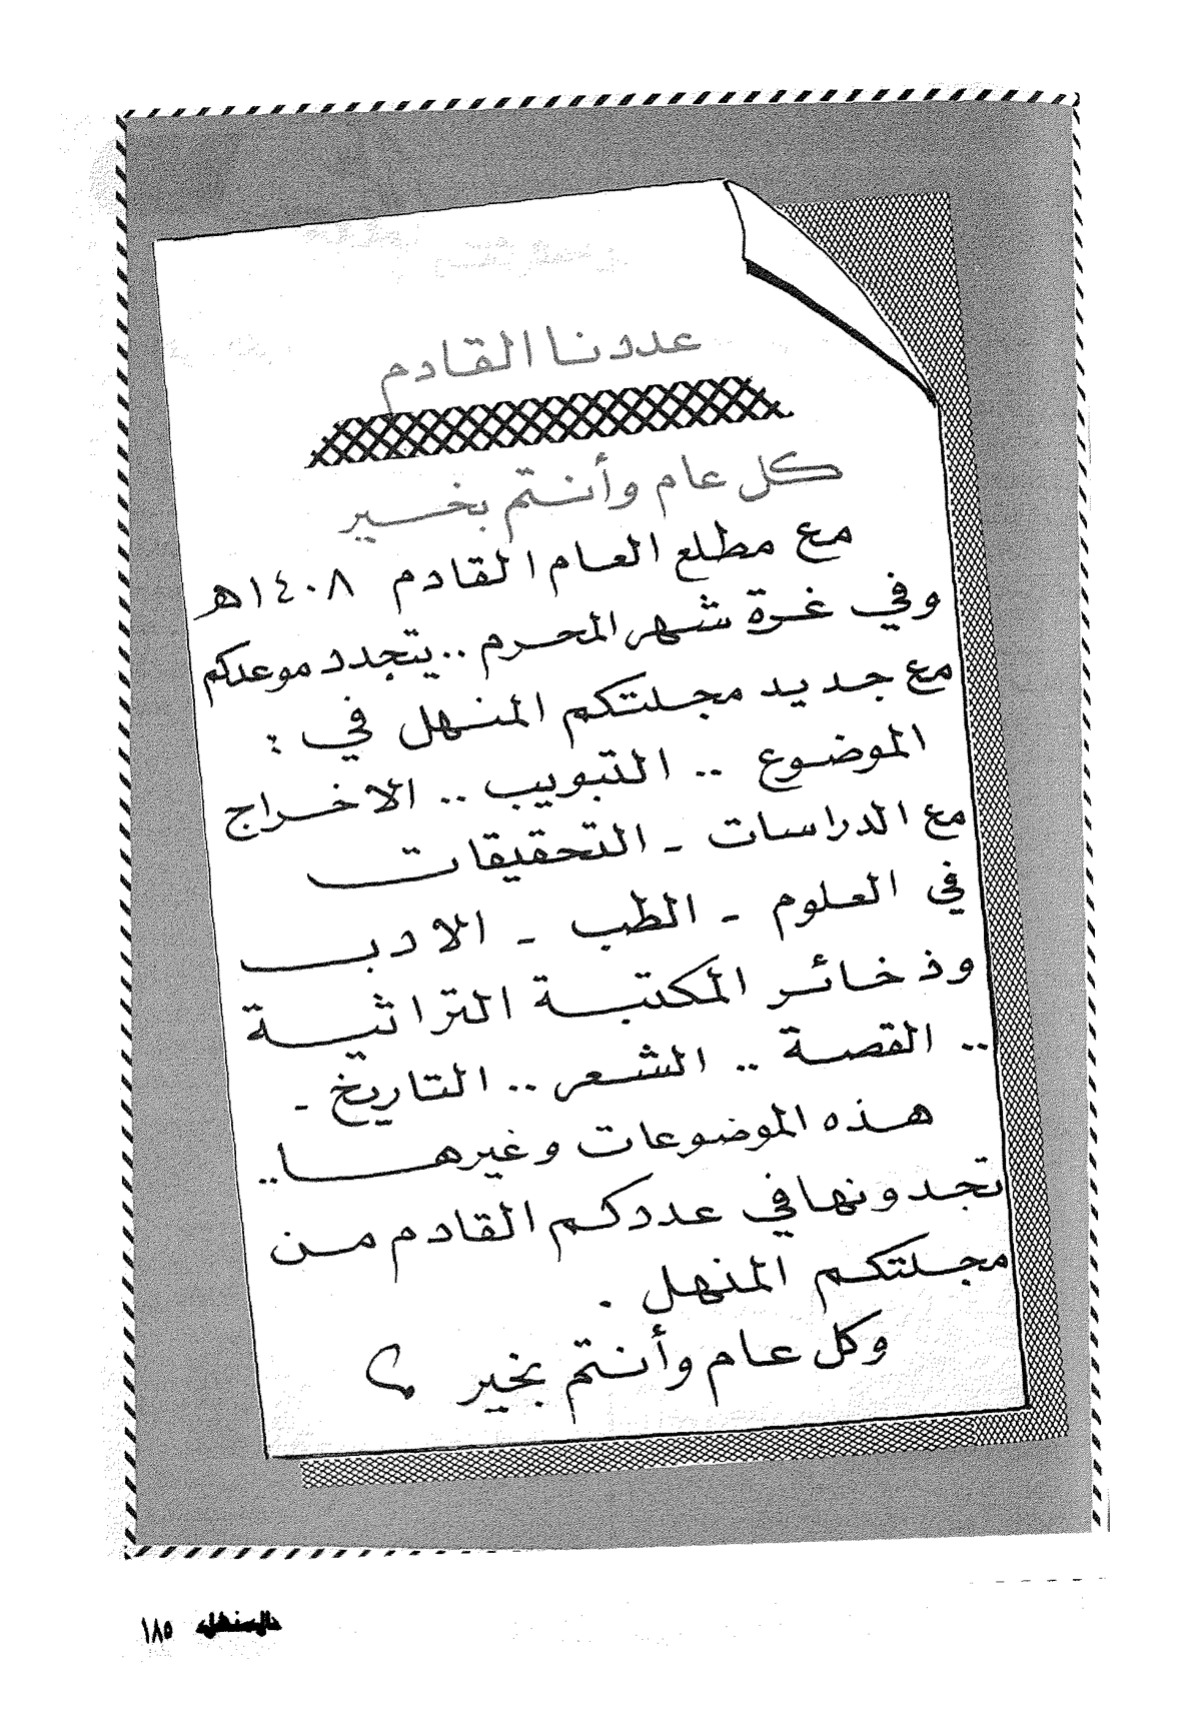 عددنا القادم
كل عام وأنتم بخير
مع مطلع العام القادم ١٤٠٨هـ
وفي غرة شهر المحرم .. يتجدد موعدكم
مع جديد مجلتكم المنهل في :
الموضوع .. التبويب .. الاخراج
مع الدراسات - التحقيقات
في العلوم - الطب - الادب
وذخائر المكتبة التراثية
.. القصة .. الشعر .. التاريخ -
هذه الموضوعات وغيرها ..
تجدونها في عددكم القادم من
مجلتكم المنهل .
وكل عام وأنتم بخير
المنهل ١٨٥